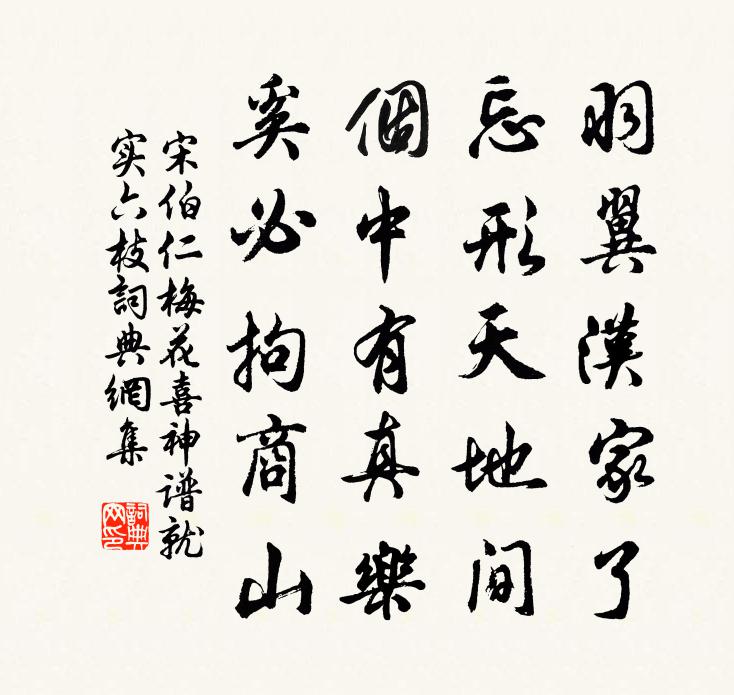 羽翼漢家了
忘形天地間
個中有真樂
奚必拘商山
宋伯仁梅花喜神谱就
实六枝詞典網集
詞典网印